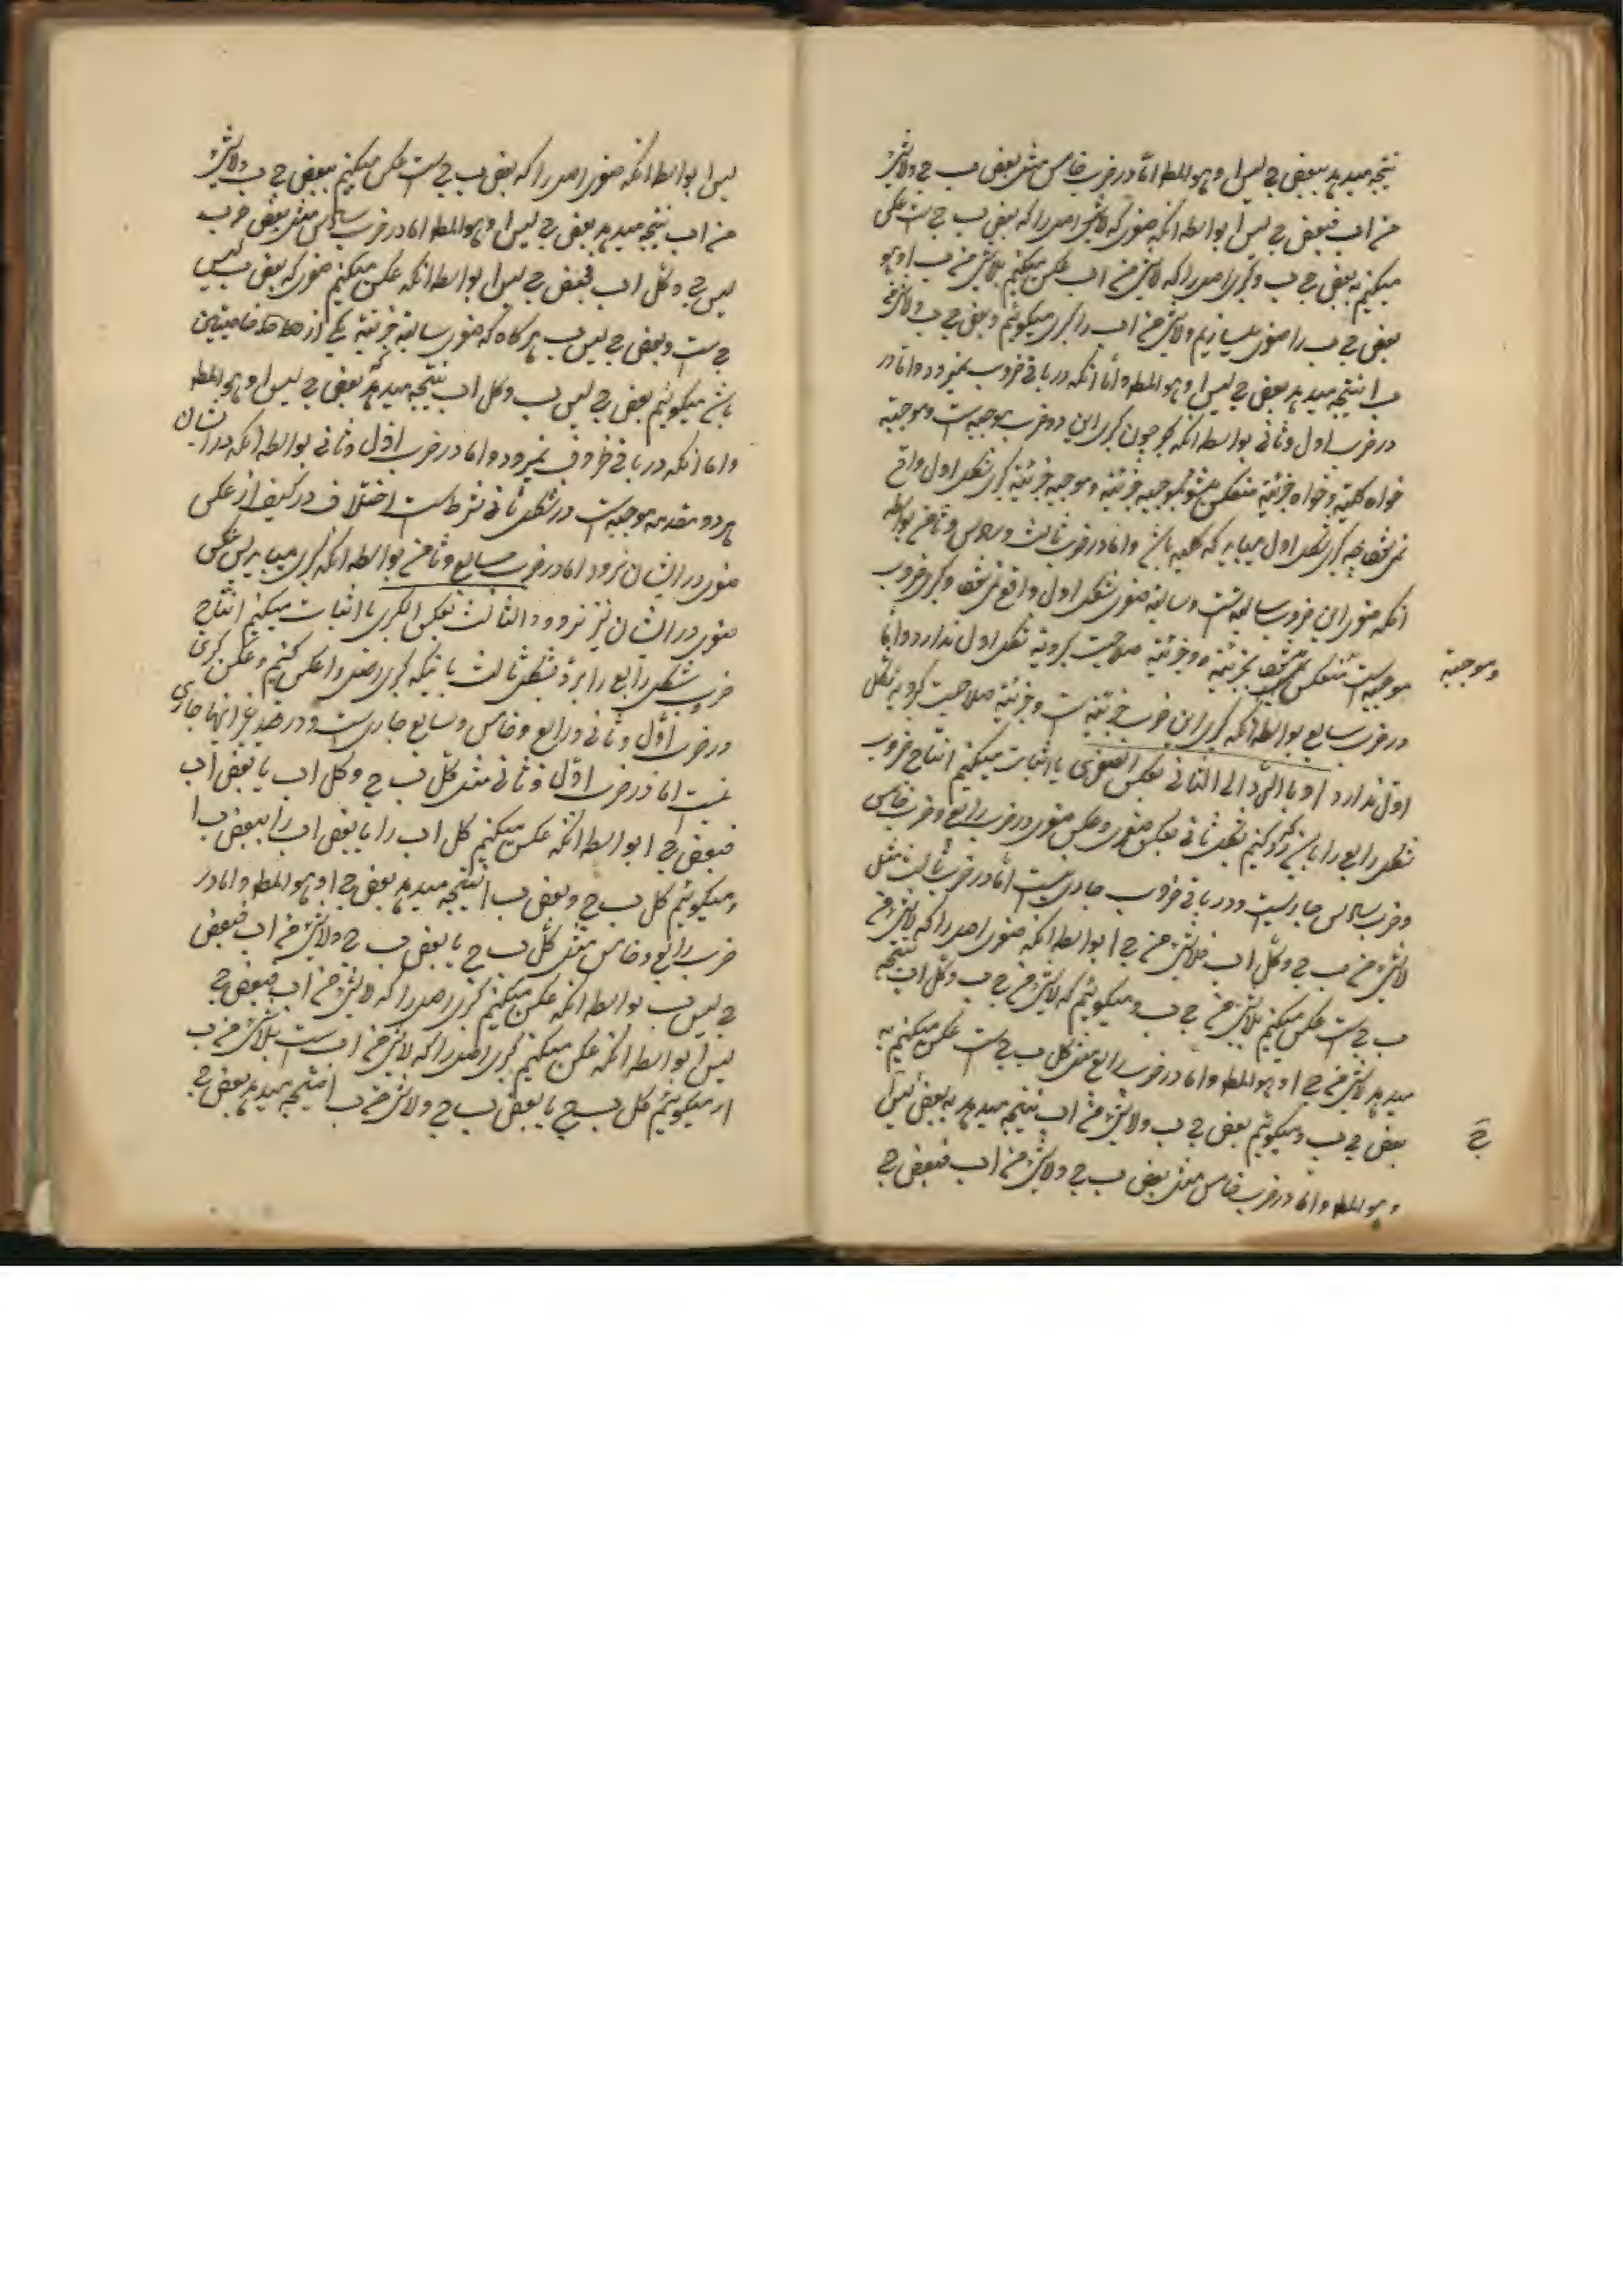 نتیجه میدهد ببعض ج لیس ا و هو المط اما در ضرب خامس مثل بعض ب ج ولاشئ
من اب فبعض ج لیس ا بواسطه انکه صغری که لاشئ اصل را که بعض ب ج ست عکس
میکنیم به بعض ج ب و کبری اصل را که لاشئ من اب عکس میکنیم بلاشئ من ب ا و هو
بعض ج ب را صغری میسازیم ولاشئ من اب را کبری میگوئیم و بعض ج ب ولاشئ من
ب ا نتیجه میدهد بعض ج لیس ا و هو المط و اما انکه در باقی ضروب نمیرود و اما در
در ضرب اول و ثانی بواسطه انکه چون کبری این دو ضرب موجبه ست و موجبه
خواه کلیه و خواه جزئیه منعکس میشود بموجبه جزئیه و موجبه جزئیه کبری شکل اول واقع
نمی شود چه کبری شکل اول میباید که کلیه باشد و اما در ضرب ثالث و سادس و ثامن بواسطه
انکه صغری این ضروب سالبه ست و سالبه صغری شکل اول واقع نمی شود و کبری ضروب
موجبه ست منعکس بجزئیه و جزئیه صلاحیت کبرویة شکل اول ندارد و اما
وموجبه
در ضرب سابع بواسطه انکه کبری این ضرب جزئیه ست و جزئیه صلاحیت کبرویه شکل
اول ندارد او بالرد الی الثانی بعکس الصغری یا اثبات میکنیم انتاج ضروب
شکل رابع را باینکه رد کنیم بشکل ثانی بعکس صغری و عکس صغری در ضرب رابع و ضرب خامس
و ضرب سادس جاریست و در باقی ضروب جاری نیست اما در ضرب ثالث مثل
لاشئ من ب ج و کل اب فلاشئ من ج ا بواسطه انکه صغری اصل را که لاشئ من
ب ج ست عکس میکنیم بلاشئ من ج ب و میگوئیم که لاشئ من ج ب و کل اب نتیجه
میدهد لاشئ من ج ا و هو المط و اما در ضرب رابع مثل کل ب ج ست عکس میکنیم به
بعض ج ب و میگوئیم بعض ج ب ولاشئ من اب نتیجه میدهد به بعض لیس ا
ج
و هو المط و اما در ضرب خامس مثل بعض ب ج ولاشئ من اب فبعض ج
لیس ا بواسطه انکه صغری اصل را که بعض ب ج ست عکس میکنیم ببعض ج ب ولاشئ
من اب نتیجه میدهد بعض ج لیس ا و هو المط اما در ضرب سادس مثل بعض ب
لیس ج و کل اب فبعض ج لیس ا بواسطه انکه عکس میکنیم صغری که بعض ب لیس
ج ست و بعض ج لیس ب هرگاه که صغری سالبه جزئیه یکی از خاصیتین
باشد میگوئیم بعض ج لیس ب و کل اب نتیجه میدهد که بعض ج لیس ا و هو المط
و اما انکه در باقی ضروب نمیرود و اما در ضرب اول و ثانی بواسطه انکه در ایشان
هر دو مقدمه موجبه ست در شکل ثانی شرط ست اختلاف در کیف از عکس
صغری در ایشان نرود اما در ضرب سابع و ثامن بواسطه انکه کبری میباید پس عکس
صغری در ایشان نیز نرود و الثالث بعکس الکبری یا اثبات میکنیم انتاج
ضروب شکل رابع را برد بشکل ثالث باینکه کبری اصل را عکس کنیم و عکس کبری
در ضرب اول و ثانی و رابع و خامس و سابع جاری ست و در ضرب غیر اینها جاری
نیست اما در ضرب اول و ثانی مثل کل ب ج و کل اب یا بعض اب
فبعض ج ا بواسطه انکه عکس میکنیم کل اب را یا بعض اب را ببعض ب ا
و میگوئیم کل ب ج و بعض ب ا نتیجه میدهد بعض ج ا و هو المط و اما در
ضرب رابع و خامس مثل کل ب ج یا بعض ب ج ولاشئ من اب فبعض
ج لیس ب بواسطه انکه عکس میکنیم کبری اصل را که لاشئ من اب فبعض ج
لیس ا بواسطه انکه عکس میکنیم کبری اصل را که لاشئ من اب ست بلاشئ من ب
ا و میگوئیم کل ب ج یا بعض ب ج ولاشئ من ب ا نتیجه میدهد بعض ج